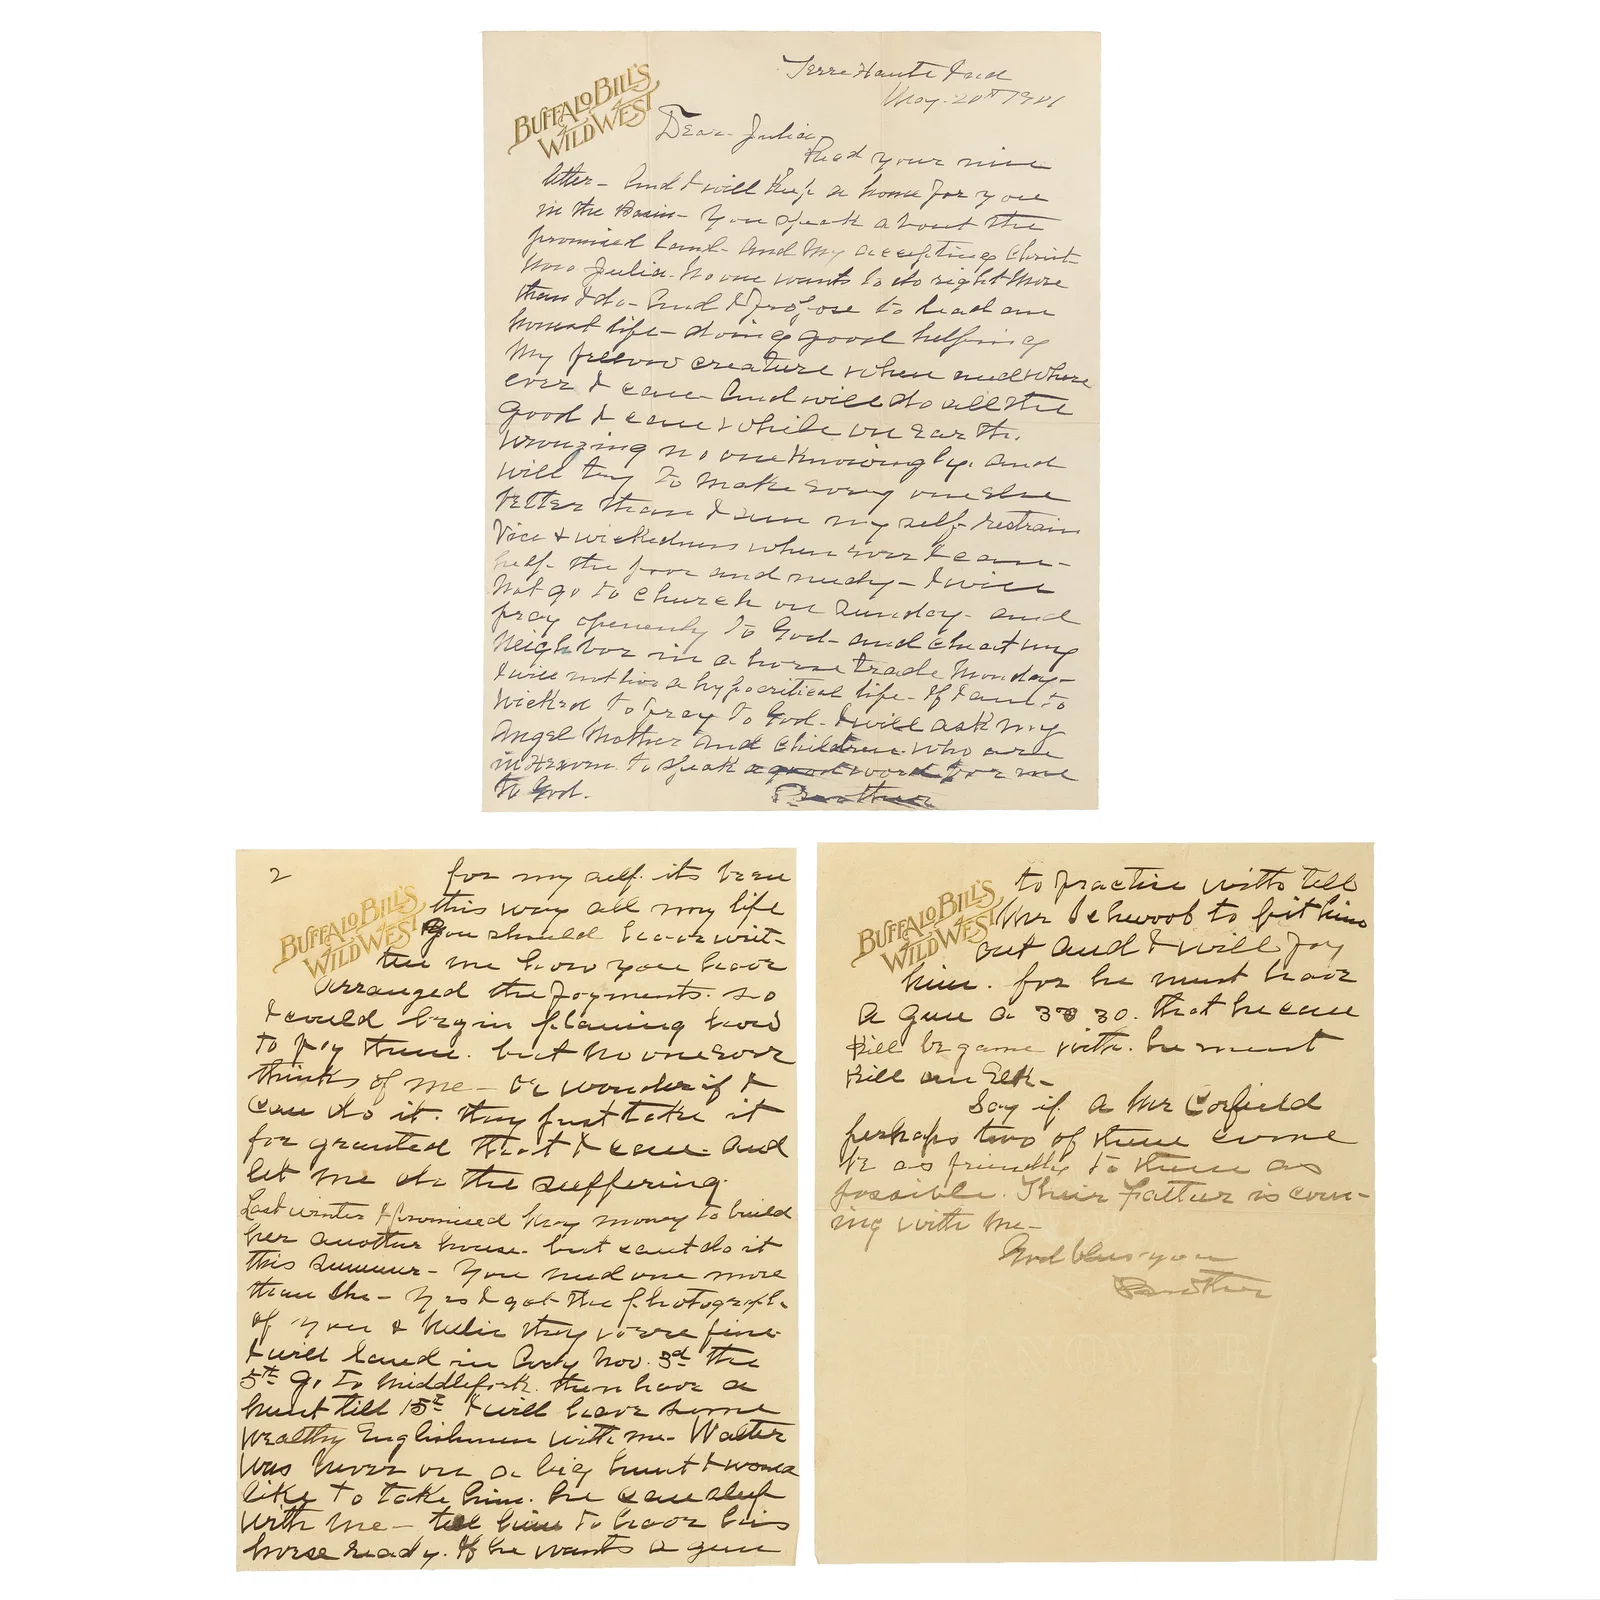 BUFFALO BILL'S
WILD WEST
Terre Haute Ind
May. 20th 1901
Dear Julia
Read your nice
letter - And I will keep a home for you
in the Basin - You speak about the
promised land - And my accepting Christ -
Now Julia. No one wants to do right more
than I do - And I propose to lead an
honest life - doing good helping
My fellow creature when and where
ever I can - And will do all the
good I can while on Earth.
Wronging no one knowingly. and
will try to make every one else
better than I am my self - restrain
Vice & wickedness when ever I can -
help the poor and needy - I will
Not go to church on Sunday - and
pray openenly to God - and cheat my
Neighbor in a horse trade Monday -
I will not live a hypocritical life - If I am to
wicked to pray to God - I will ask my
Angel Mother and children who are
in Heaven to speak a good word for me
to God.
Brother
2
BUFFALO BILL'S
WILD WEST
for my self. its been
this way all my life
You should have writ-
ten me how you have
Arranged the payments. so
I could begin planing how
to pay them. but no one ever
thinks of me - or wonder if I
can do it. they just take it
for granted that I can. And
let me do the suffering.
Last winter I promised May money to build
her another house. but cant do it
this summer - You need one more
than she - Yes I got the photograph.
of you & Nellie they were fine
I will land in Cody Nov. 3d the
5th go to Middlefork. then have a
hunt till 15th I will have some
wealthy Englishmen with me - Walter
was never on a big hunt I would
like to take him. he can sleep
with me - tell him to have his
horse ready. If he wants a gun
BUFFALO BILL'S
WILD WEST
to practice with tell
Mr Schwoob to fit him
out and I will pay
him. for he must have
a gun a 30 30. that he can
kill big game with. he must
kill an Elk -
Say if a Mr Corfield
perhaps two of them come
be as friendly to them as
possible. Their father is com-
ing with me -
God bless you
Brother